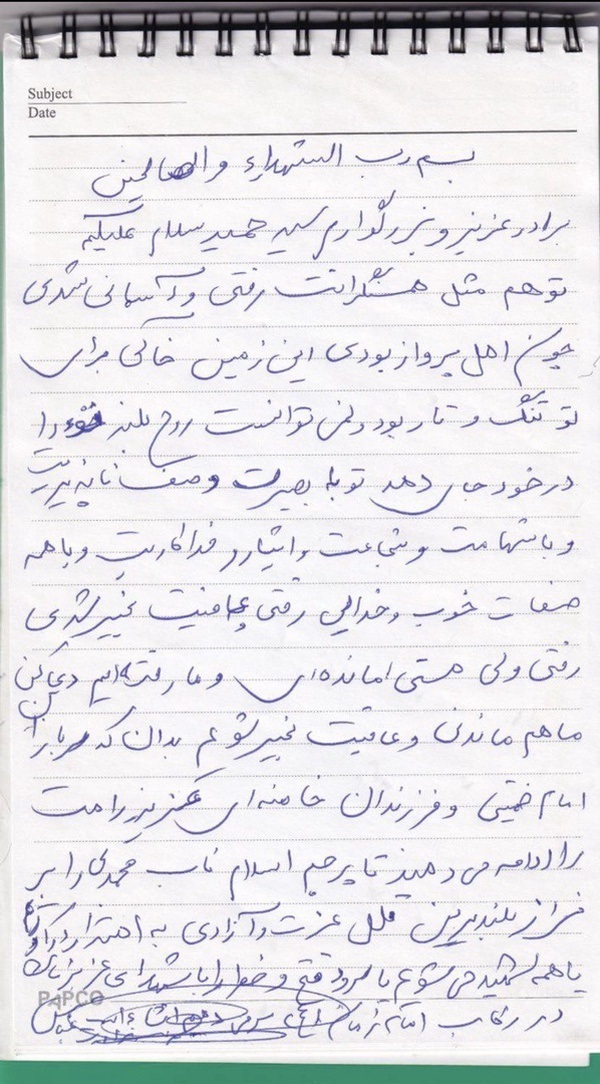 Subject
Date
بسم رب الشهداء و الصالحین
برادر عزیز و بزرگوارم سید حمید سلام علیکم
تو هم مثل همسنگرانت رفتی و آسمانی شدی
چون اهل پرواز بودی این زمین خاکی برای
تو تنگ و تار بود و نمی توانست روح بلند خود را
در خود جای دهد تو با بصیرت وصف ناپذیریت
و با شهامت و شجاعت و ایثار و فداکاریت و با همه
صفات خوب و خدایی رفتی و عاقبت بخیر شدی
رفتی ولی هستی اما مانده ای و ما رفته ایم دعا کن
ما هم ماندنی و عاقبت بخیر شویم بدان که
امام خمینی و فرزندان خامنه ای عزیز راهت
را ادامه می دهند تا پرچم اسلام ناب محمدی را بر
فراز بلندترین قلل عزت و آزادی به اهتزاز درآورند
یا همه شهید می شویم یا سرود فتح و ظفر را با شهدای عزیزمان
در رکاب امام زمان
PAPCO